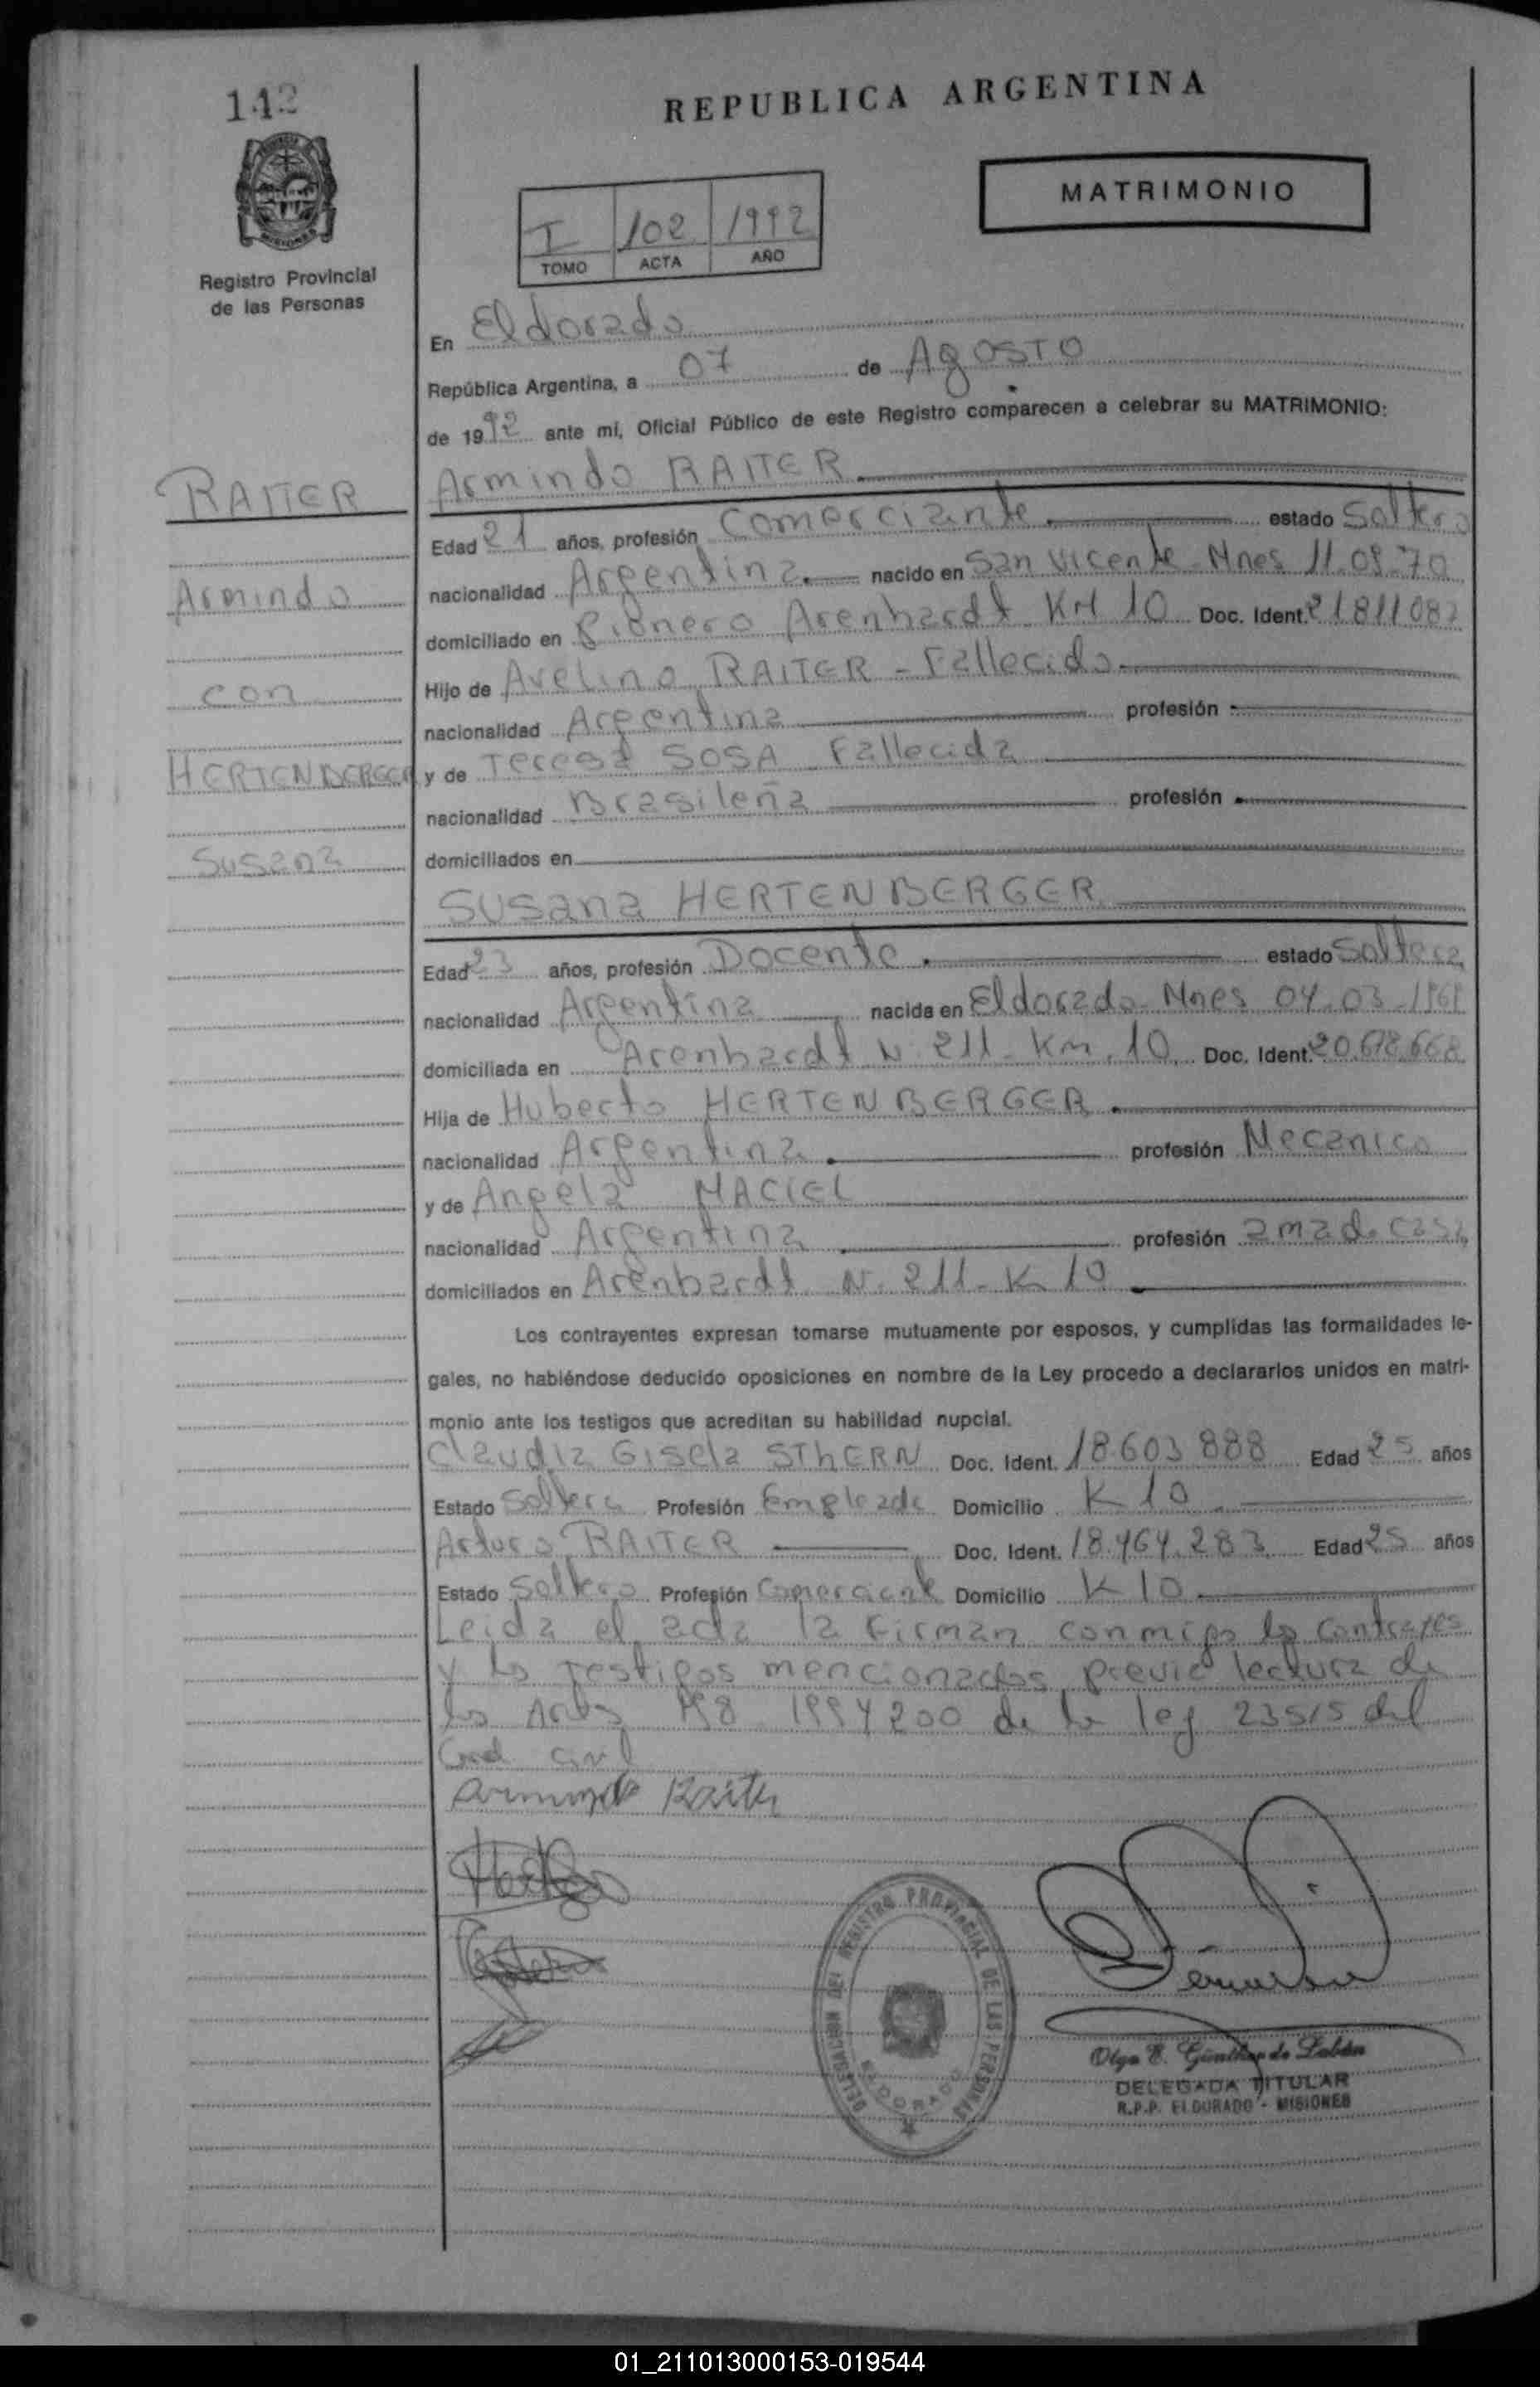 142
REPUBLICA ARGENTINA
MATRIMONIO
I 102 1992
TOMO ACTA AÑO
Registro Provincial
de las Personas
En Eldorado
República Argentina, a 07 de Agosto
de 1992 ante mí, Oficial Público de este Registro comparecen a celebrar su MATRIMONIO:
RAITER
Armindo
con
HERTENBERGER
Susana
Armindo RAITER
Edad 21 años, profesión Comerciante estado Soltero
nacionalidad Argentina. nacido en San Vicente - Mnes 11.09.70
domiciliado en Pionero Arenhardt KM 10 Doc. Ident. 21811082
Hijo de Avelino RAITER - Fallecido
nacionalidad Argentina profesión
y de Teresa SOSA Fallecida
nacionalidad Brasileña profesión
domiciliados en
Susana HERTENBERGER
Edad 23 años, profesión Docente estado Soltera
nacionalidad Argentina nacida en Eldorado - Mnes 04.03.1969
domiciliada en Arenhardt N. 211 - Km. 10 Doc. Ident. 20.678.668
Hija de Huberto HERTENBERGER
nacionalidad Argentina profesión Mecanico
y de Angela MACIEL
nacionalidad Argentina profesión ama de casa
domiciliados en Arenhardt N. 211 - K 10
Los contrayentes expresan tomarse mutuamente por esposos, y cumplidas las formalidades le-
gales, no habiéndose deducido oposiciones en nombre de la Ley procedo a declararlos unidos en matri-
monio ante los testigos que acreditan su habilidad nupcial.
Claudia Gisela SThERN Doc. Ident. 18.603.888 Edad 25 años
Estado Soltera Profesión Empleada Domicilio K 10
Arturo RAITER Doc. Ident. 18.464.283 Edad 25 años
Estado Soltero Profesión Comerciante Domicilio K 10
Leida el acta la firman conmigo los contrayes
y los Testigos mencionados, previa lectura de
los Arts 198 199 y 200 de la ley 23515 del
Cod civil
Armindo Raiter
DELEGACION DEL REGISTRO PROVINCIAL DE LAS PERSONAS
ELDORADO
Olga E. Günther de Labán
DELEGADA TITULAR
R.P.P. ELDORADO - MISIONES
01_211013000153-019544